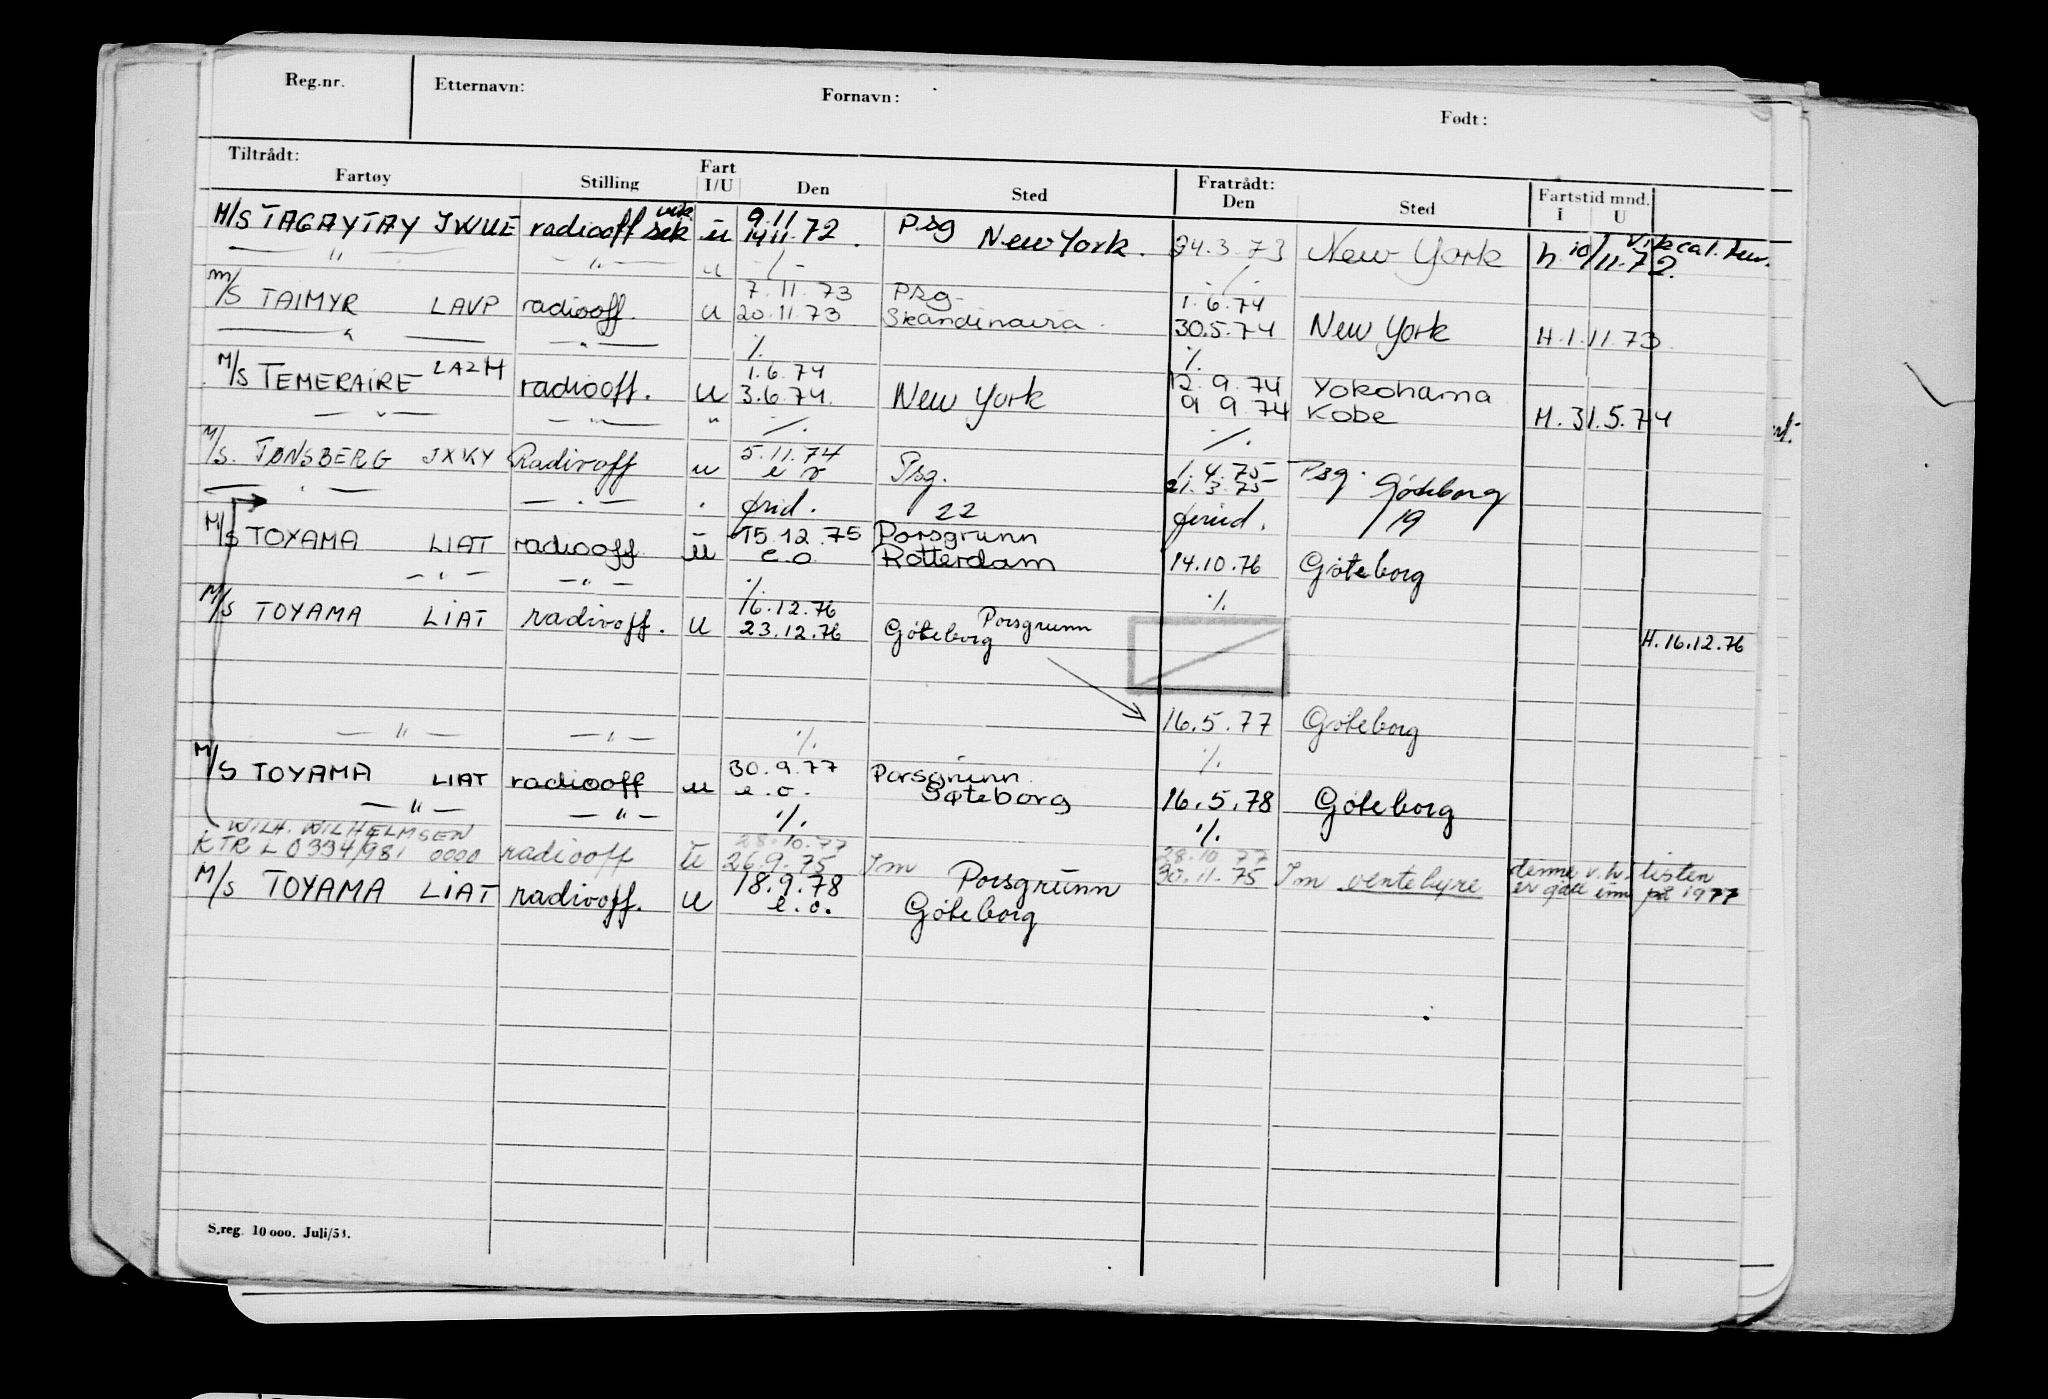 Reg.nr. Etternavn: Fornavn: Født:
Tiltrådt: Fratrådt:
Fartøy Stilling Fart I/U Den Sted Den Sted Fartstid mnd. I U
M/S TAGAYTAY JWUE radiooff u 9.11 14.11.72. Psg New York. 24.3.73 New York h 10/11.72.
— " — — " — u -/- ./.
M/S TAIMYR LAVP radiooff. u 7.11.73 20.11.73 Psg. Skandinavia. 1.6.74 30.5.74 New York H.1.11.73.
— " — — " — ./. ./.
M/S TEMERAIRE LAZM radiooff. U 1.6.74 3.6.74. New York 12.9.74 Yokohama 9.9.74 Kobe H.31.5.74
— " — — " — " ./. ./.
M/S. TØNSBERG JXKY Radiooff u 5.11.74 Psg. 1.4.75 21.3.75 Psg. Göteborg
— . — — . — . 22 19
M/S TOYAMA LIAT radiooff u 15.12.75 e.o. Porsgrunn Rotterdam 14.10.76 Göteborg
— " — — " — ./. ./.
M/S TOYAMA LIAT radiooff. U 16.12.76 23.12.76 Porsgrunn Göteborg H.16.12.76
16.5.77 Göteborg
— " — — " — ./. ./.
M/S TOYAMA LIAT radiooff u 30.9.77 e.o. Porsgrunn Gøteborg 16.5.78 Göteborg
— " — — " — ./. ./.
WILH. WILHELMSEN 28.10.77 28.10.77
KTR L 0334/981 0000 radiooff U 26.9.75 Im 30.11.75 Im ventehyre denne v.h. listen er gått inn på 1977
M/S TOYAMA LIAT radiooff. U 18.9.78 e.o. Porsgrunn Göteborg
S.reg. 10 000. Juli/53.